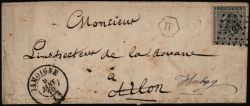 Monsieur
H
l'inspecteur de la Douane
à Arlon
JAMOIGNE